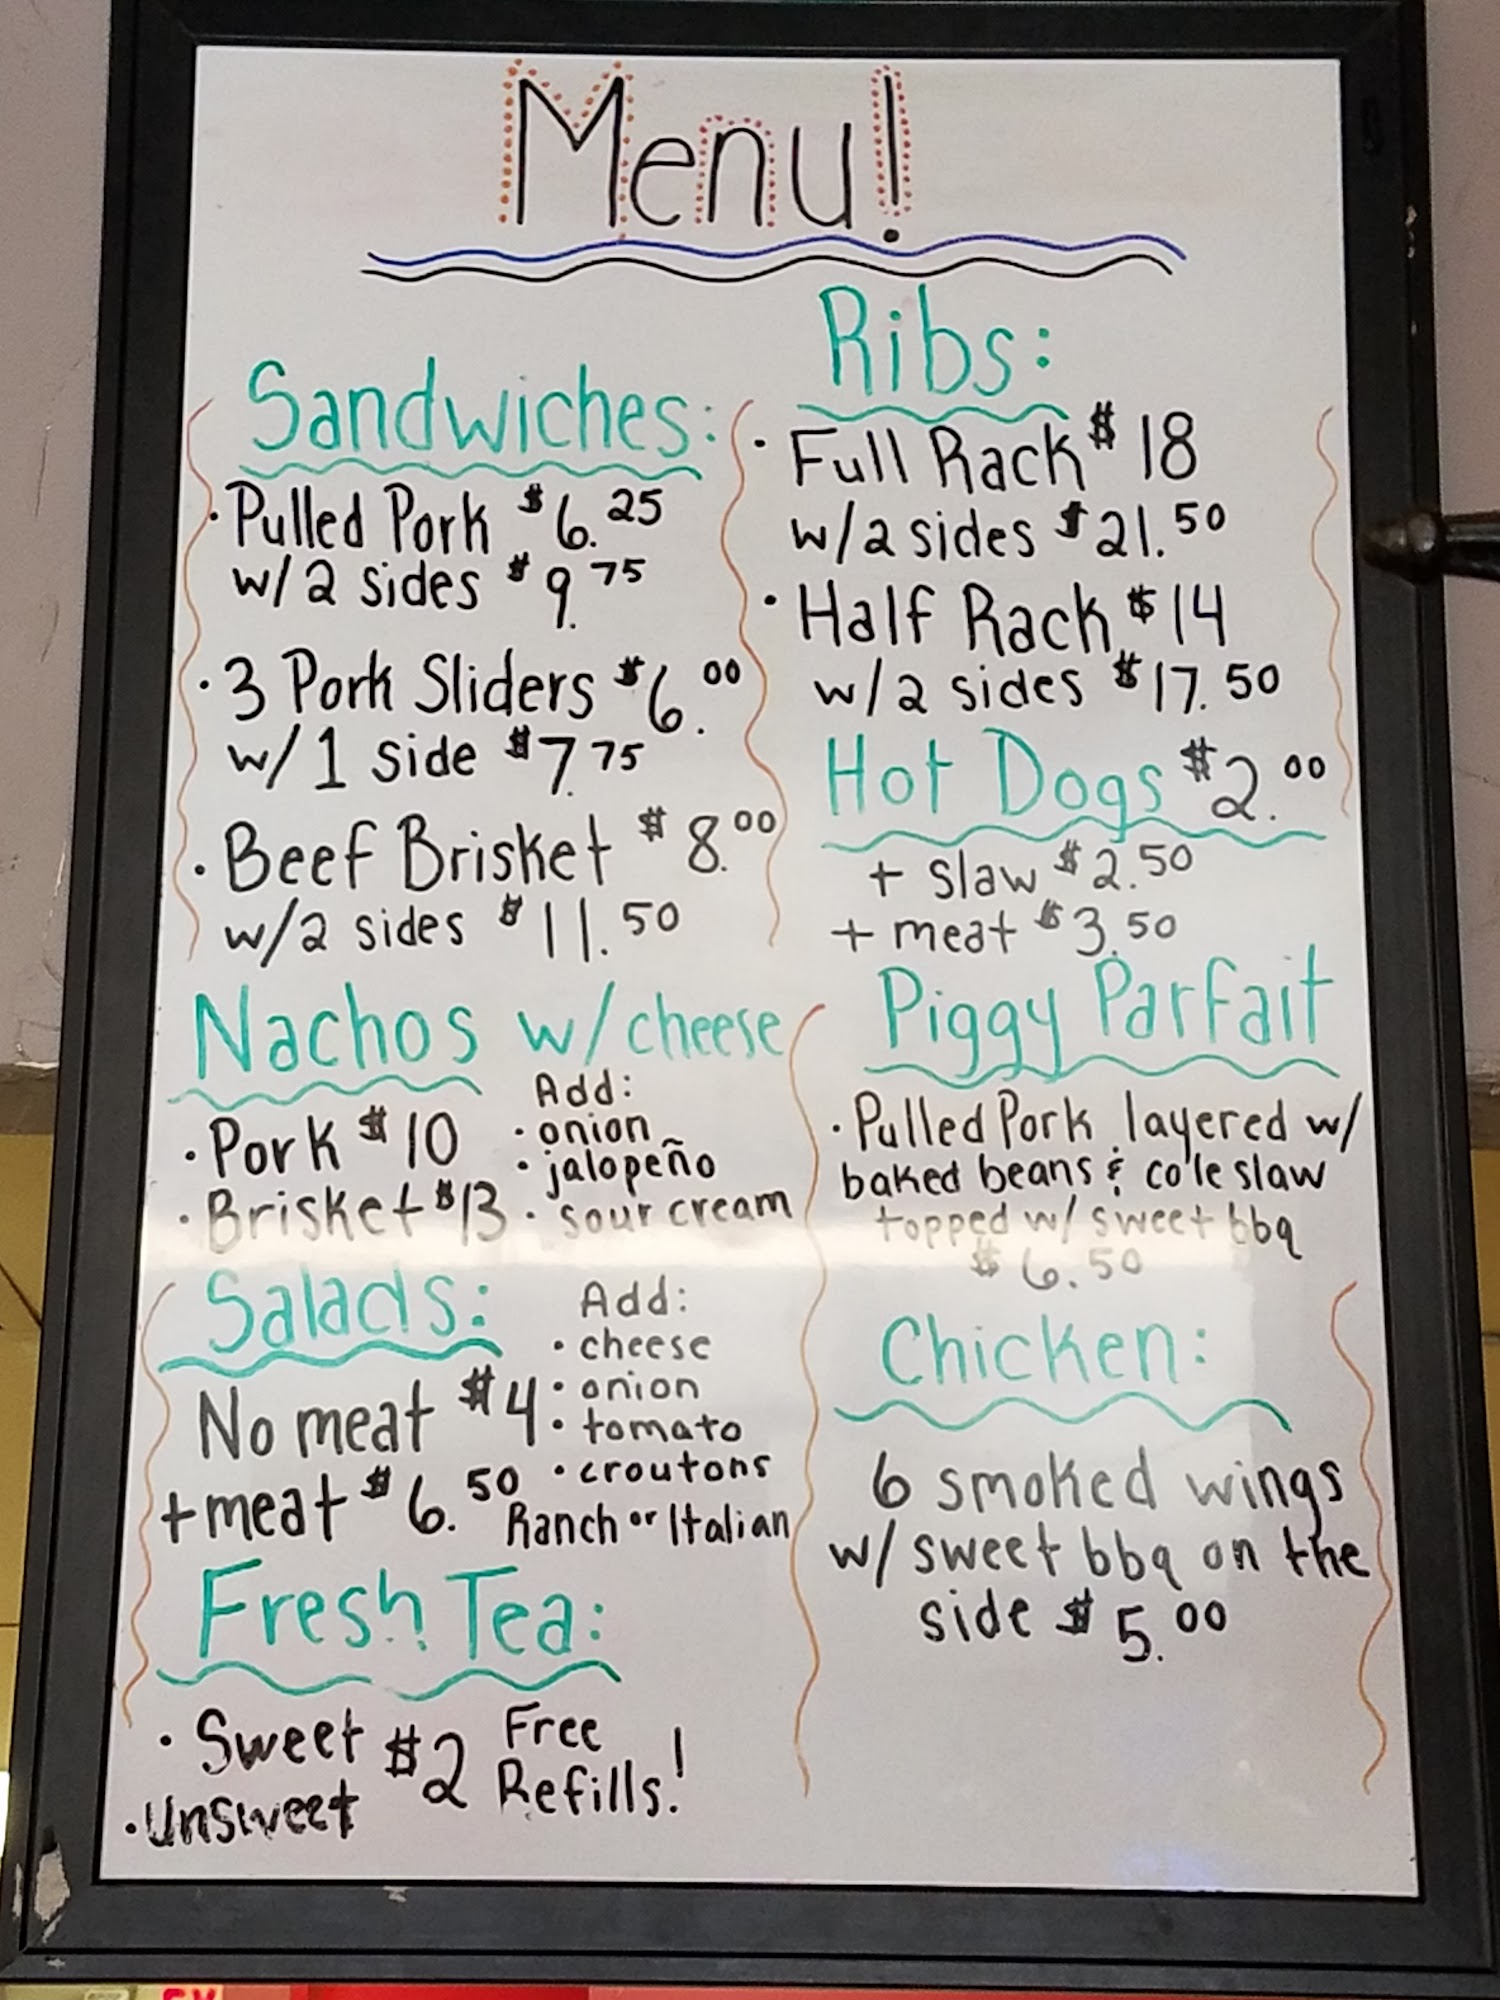 Menu!
Sandwiches:
• Pulled Pork $6.25
w/2 sides $9.75
• 3 Pork Sliders $6.00
w/1 side $7.75
• Beef Brisket $8.00
w/2 sides $11.50
Nachos w/cheese
• Pork $10
• Brisket $13
Add:
• onion
• jalopeño
• sour cream
Salads:
No meat $4
+ meat $6.50
Add:
• cheese
• onion
• tomato
• croutons
Ranch or Italian
Fresh Tea:
• Sweet $2
• Unsweet
Free
Refills!
Ribs:
• Full Rack $18
w/2 sides $21.50
• Half Rack $14
w/2 sides $17.50
Hot Dogs $2.00
+ slaw $2.50
+ meat $3.50
Piggy Parfait
• Pulled Pork layered w/
baked beans & cole slaw
topped w/ sweet bbq
$6.50
Chicken:
6 smoked wings
w/ sweet bbq on the
side $5.00